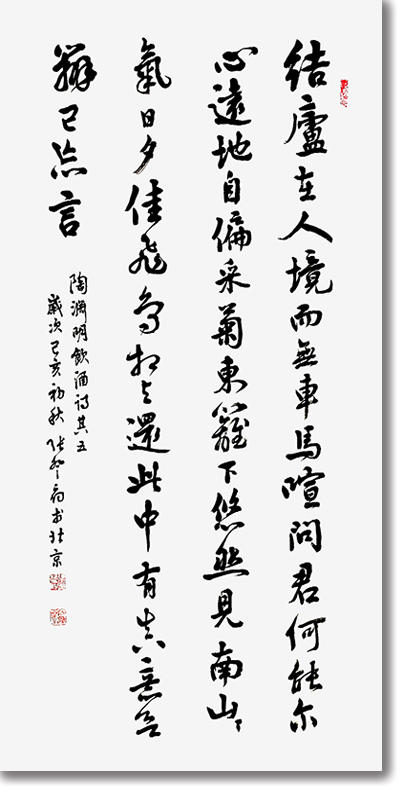 結廬在人境而無車馬喧問君何能尔
心遠地自偏采菊東籬下悠然見南山〻
氣日夕佳飛鳥相与還此中有真意欲
辯已忘言
陶渊明飲酒诗其五
歲次己亥初秋张北京